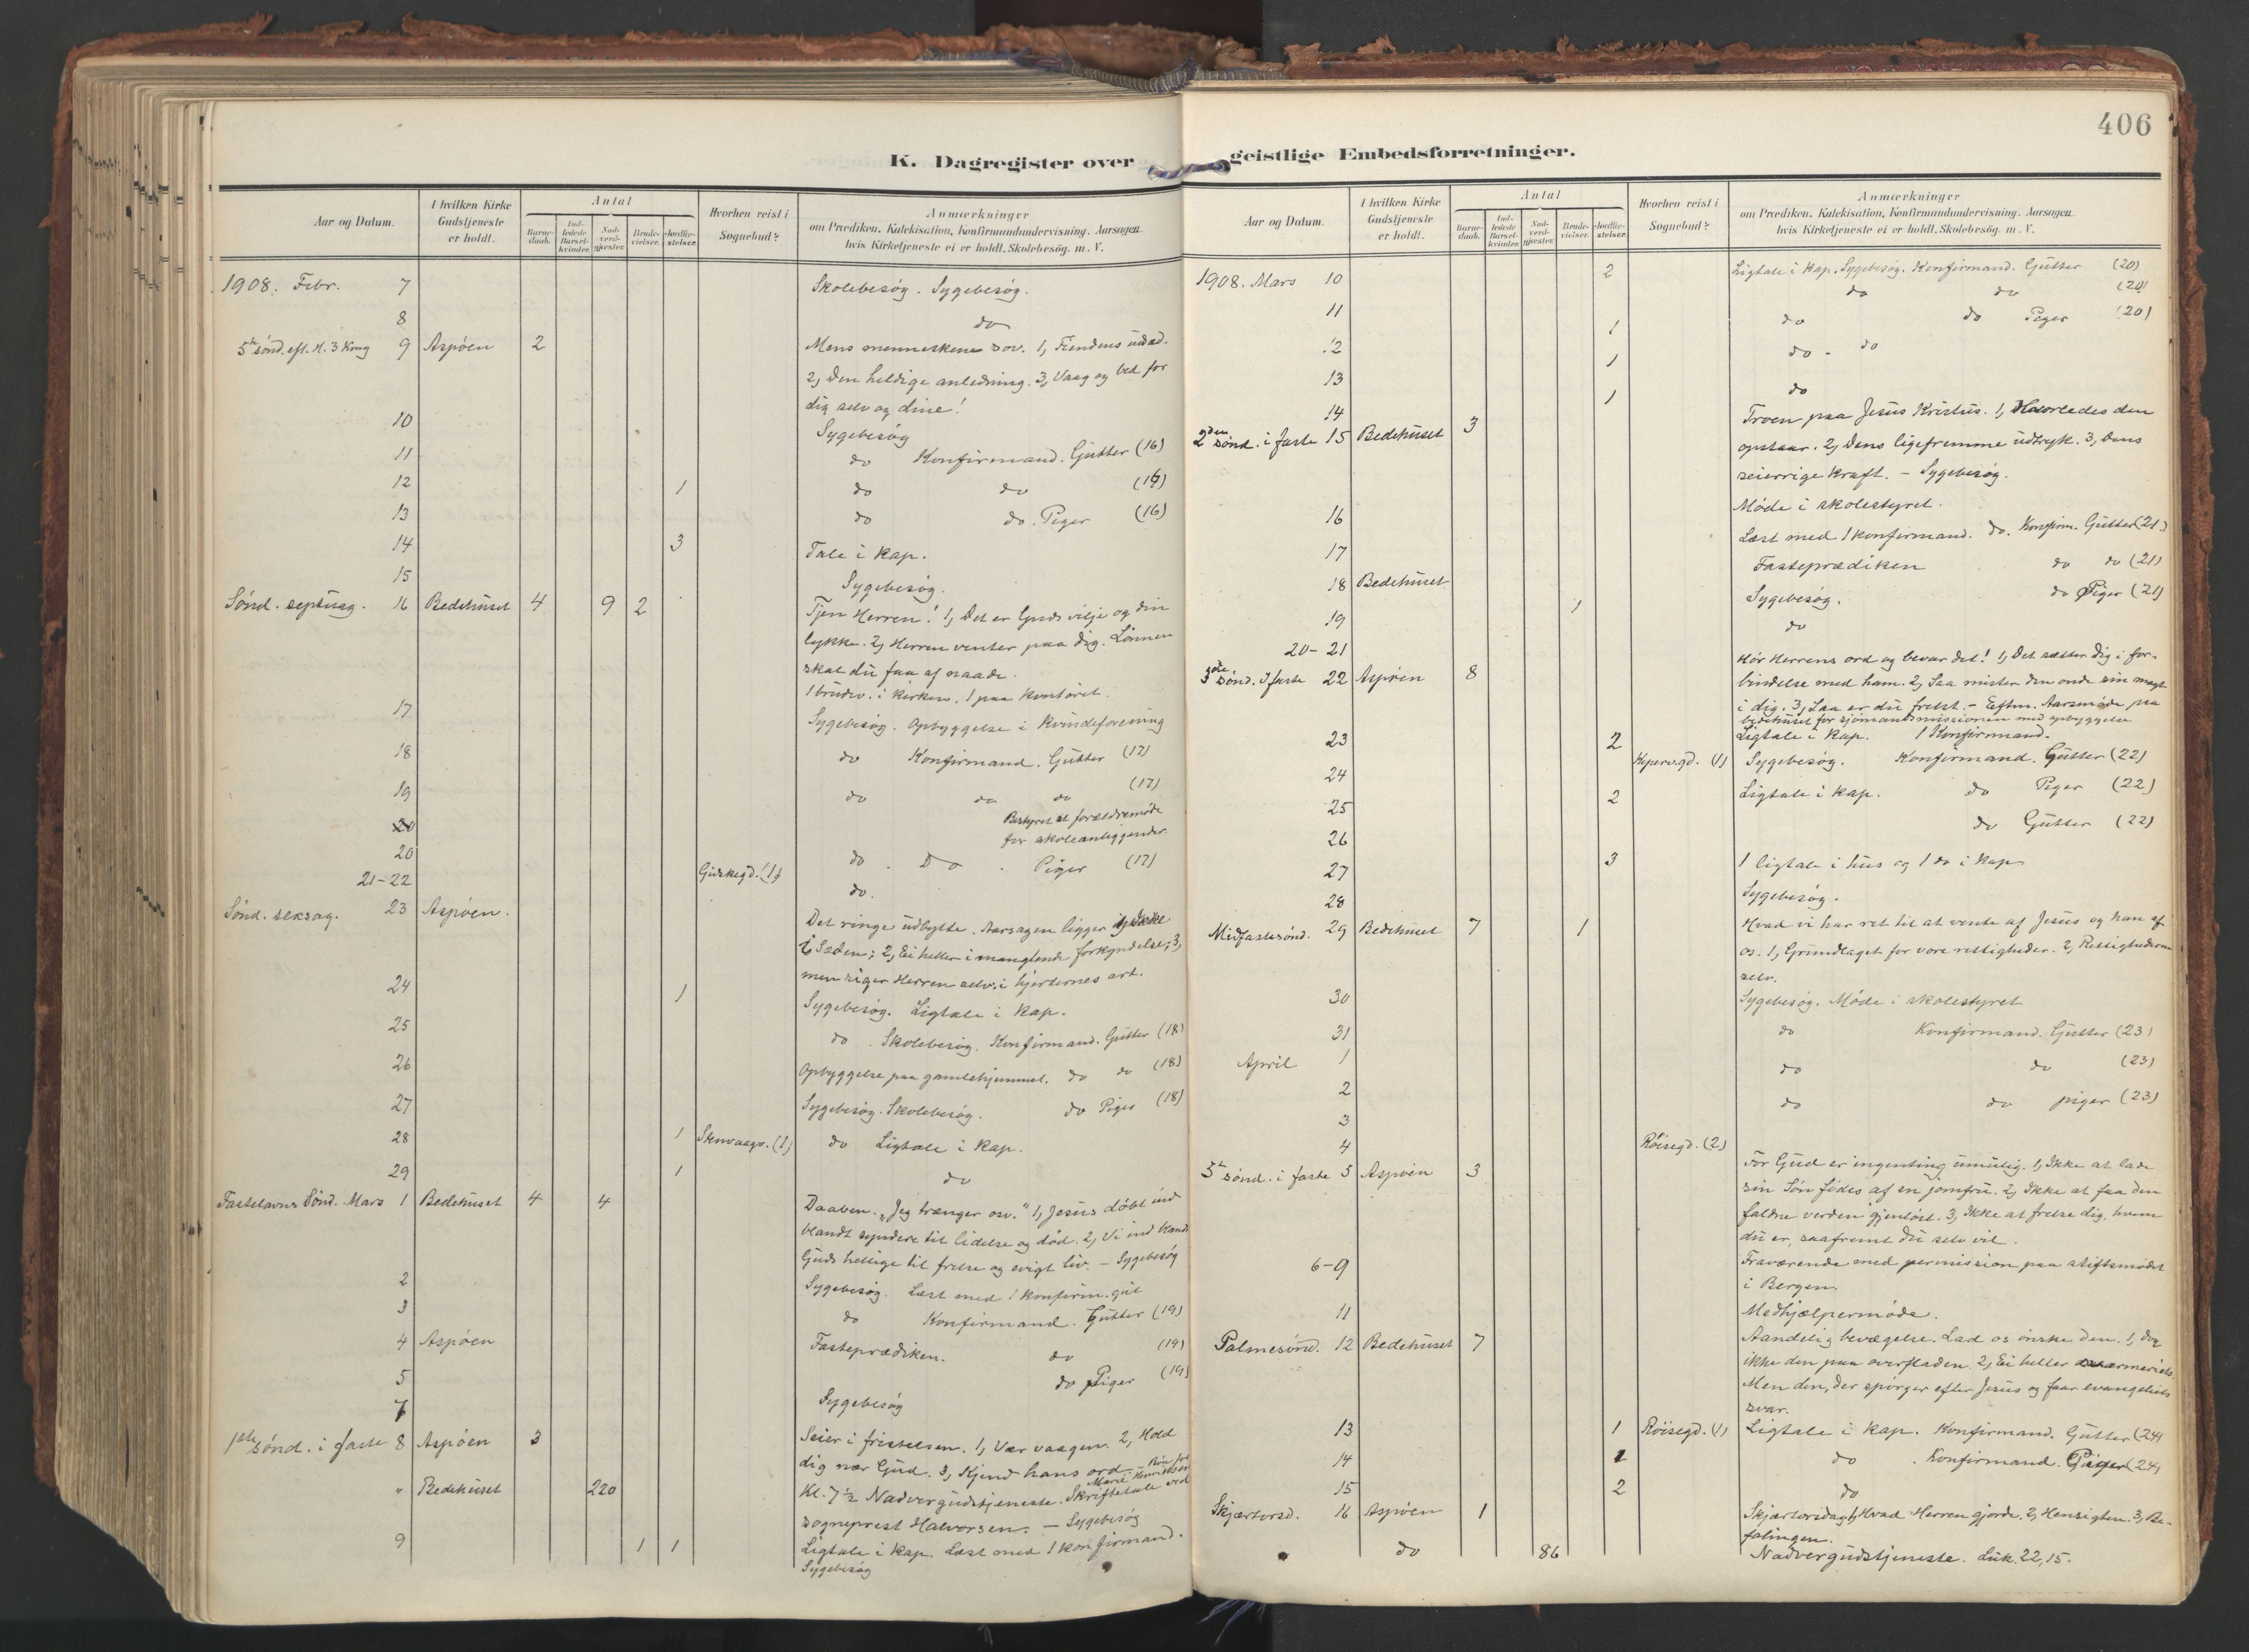 406
K. Dagregister over
Aar og Datum.
I hvilken Kirke Gudstjeneste er holdt.
Antal
Barnedaab.
Indledede Barselkvinder.
Nadverdgjester.
Brudevielser.
Jordfæstelser.
Hvorhen reist i Sognebud?
Anmærkninger
om Prædiken, Katekisation, Konfirmandundervisning. Aarsagen
hvis Kirketjeneste ei er holdt. Skolebesög. m. V.
1908. Febr. 7 Skolebesøg. Sygebesøg.
8 do
5te sönd. eft. H. 3 Kong 9 Aspöen 2 Mens menneskene sov. 1, Fiendens udsæd.
2, Den heldige anledning. 3, Vaag og bed for
dig selv og dine!
10 Sygebesøg
11 do Konfirmand. Gutter (16)
12 1 do do (16)
13 do do. Piger (16)
14 3 Tale i kap.
15 Sygebesøg.
Sönd. septuag. 16 Bedehuset 4 9 2 Tjen Herren! 1, Det er Guds vilje og din
lykke. 2, Herren venter paa dig. Lönnen
skal du faa af naade.
1 brudev. i kirken, 1 paa kontoret.
17 Sygebesøg. Opbyggelse i Kvindeforening
18 do Konfirmand. Gutter (17)
19 do do do (17)
Bestyret et forældremöde
for skoleanliggender.
20 do. Do. Piger (17)
21-22 Gidskegd. (1) do.
Sönd. seksag. 23 Aspöen. Det ringe udbytte. Aarsagen ligger 1, Ikke
i Sæden; 2, Ei heller i manglende forkyndelse; 3,
men siger Herren selv: i hjerternes art.
24 1 Sygebesøg. Ligtale i kap.
25 do. Skolebesøg. Konfirmand. Gutter (18)
26 Opbyggelse paa gamlehjemmet. do do (18)
27 Sygebesøg. Skolebesøg. do Piger (18)
28 1 (1) do Ligtale i kap.
29 1 do
Fastelavns Sönd. Mars 1 Bedehuset 4 4 Daaben. „Jeg trænger osv." 1, Jesus döbt ind
blandt syndere til lidelse og död. 2, Vi ind blandt
Guds hellige til frelse og evigt liv. - Sygebesøg
2 Sygebesøg. Læst med 1 konfirm. gut
3 do Konfirmand. Gutter (19)
4 Aspöen Fasteprædiken. do (19)
5 do Piger (19)
7 Sygebesøg
1ste sönd. i faste 8 Aspöen 3 Seier i fristelsen. 1, Vær vaagen. 2, Hold
dig nær Gud. 3, Kjend hans ord. - Bön for
Marie Henriksen
" Bedehuset 220 Kl. 7 ½ Nadvergudstjeneste. Skriftetale ved
sogneprest Halvorsen. - Sygebesøg
9 1 1 Ligtale i kap. Læst med 1 konfirmand.
Sygebesøg
geistlige Embedsforretninger.
Aar og Datum.
I hvilken Kirke Gudstjeneste er holdt.
Antal
Barnedaab.
Indledede Barselkvinder.
Nadverdgjester.
Brudevielser.
Jordfæstelser.
Hvorhen reist i Sognebud?
Anmærkninger
om Prædiken, Katekisation, Konfirmandundervisning. Aarsagen
hvis Kirketjeneste ei er holdt. Skolebesög. m. V.
1908. Mars 10 2 Ligtale i kap. Sygebesøg. Konfirmand. Gutter (20)
do do (20)
11 1 do do Piger (20)
12 1 do - do
13 1 do
14
2den sönd. i faste 15 Bedehuset 3 Troen paa Jesus Kristus. 1, Hvorledes den
opstaar. 2, Dens ligefremme udtryk. 3, Dens
seierrige kraft. - Sygebesøg.
16 Möde i skolestyret.
17 Læst med 1 konfirmand. do. Konfirm. Gutter (21)
18 Bedehuset Fasteprædiken do do (21)
19 1 Sygebesøg. do Piger (21)
20-21 do
3die sönd. I faste 22 Aspöen 8 Hör Herrens ord og bevar det! 1, Det sætter dig i for-
bindelse med ham. 2, Saa mister den onde sin magt
i dig. 3, Saa er du frelst. - Eftm. Aarsmöde paa
bedehuset for sjömandsmissionen med opbyggelse
23 2 Ligtale i kap. 1 Konfirmand.
24 (1) Sygebesøg. Konfirmand. Gutter (22)
25 2 Ligtale i kap. do Piger (22)
26 do Gutter (22)
27 3 1 ligtale i hus og 1 do i kap.
28 Sygebesøg.
Midfastesönd. 29 Bedehuset 7 1 Hvad vi har ret til at vente af Jesus og han af
os. 1, Grundlaget for vore rettigheder. 2, Rettighederne
selv.
30 Sygebesøg. Möde i skolestyret
31 do Konfirmand. Gutter (23)
April 1 do do (23)
2 do do piger (23)
3
4 Röisegd. (2)
5te sönd. i faste 5 Aspöen 3 For Gud er ingenting umulig. 1, Ikke at lade
sin Sön födes af en jomfru. 2, Ikke at faa den
faldne verden gjenlöst. 3, Ikke at frelse dig, hvem
du er, saafremt du selv vil.
6-9 Fraværende med permission paa stiftsmödet
i Bergen.
11 Medhjælpermöde.
Palmesönd. 12 Bedehuset 7 Aandelig bevægelse. Lad os önske den. 1, Dog
ikke den paa overfladen. 2, Ei heller sværmeriets.
Men den, der spörger efter Jesus og faar evangeliets
svar.
13 1 Röisegd. (1) Ligtale i kap. Konfirmand. Gutter (24)
14 1 do. Konfirmand. Piger (24)
15 2 do
Skjærtorsd. 16 Aspöen 1 Skjærtorsdag. 1, Hvad Herren gjorde. 2, Hensigten. 3, Be-
falingen.
do 86 Nadvergudstjeneste. Luk. 22, 15.